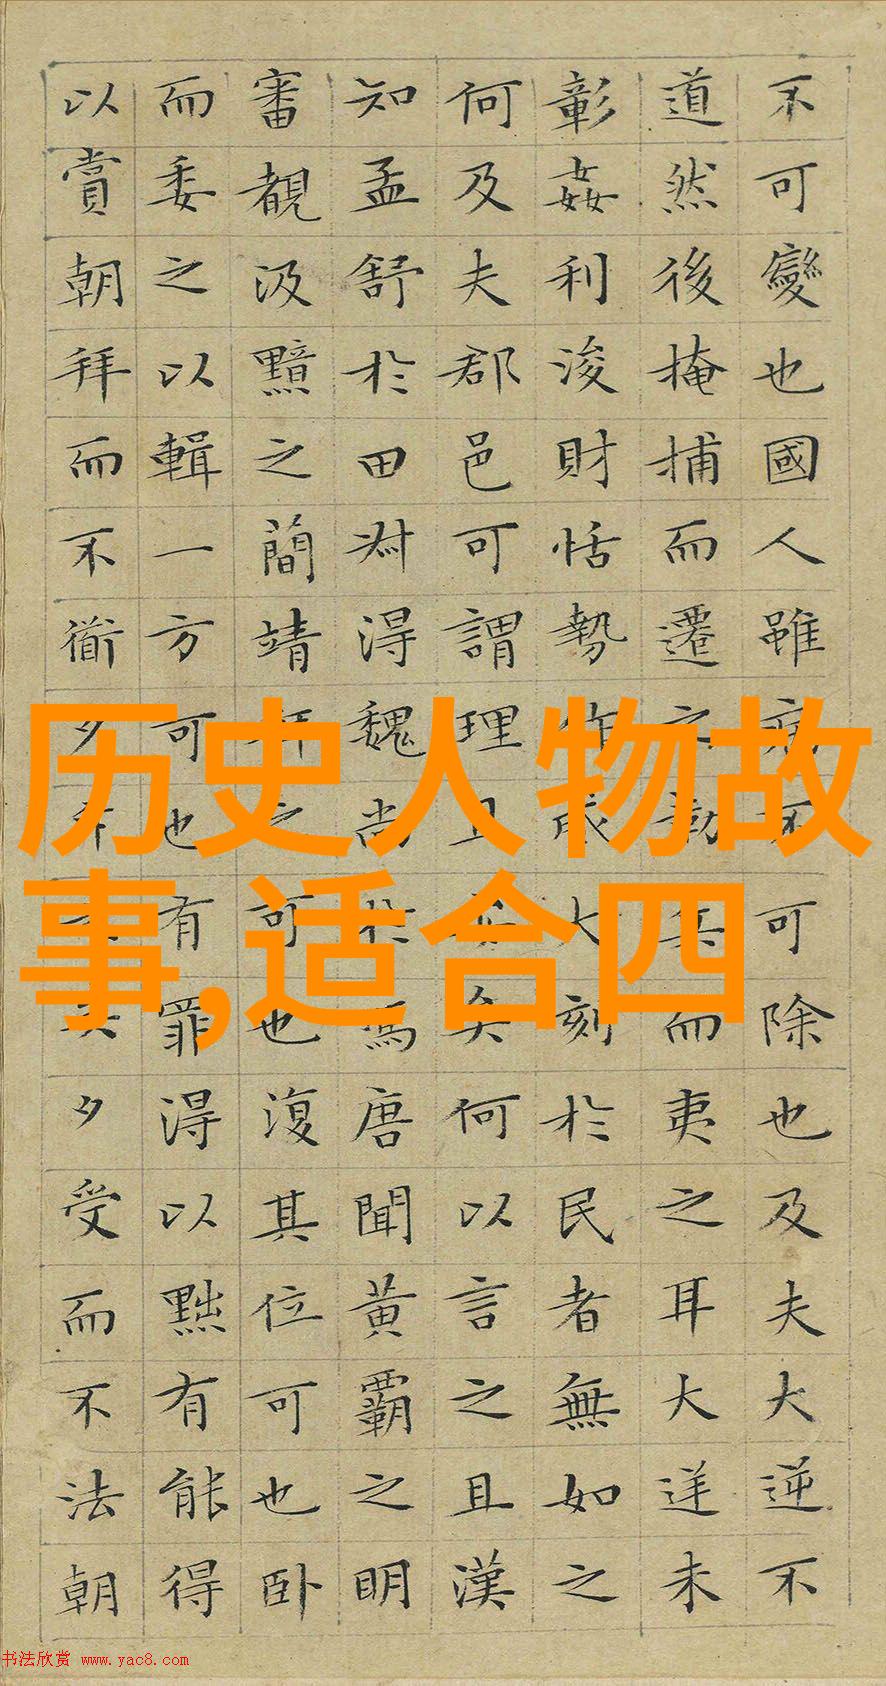 不可變也國人雖病不可除也及夫大逆不
道然後掩捕而遷之勒兵而夷之耳大逆未
彰姦利浚財怙勢作威大刻於民者無如之
何及夫郡邑可謂理且安矣何以言之且漢
知孟舒於田叔得魏尚於馮唐聞黃霸之明
審覩汲黯之簡靖拜之可也復其位可也卧
而委之以輯一方可也有罪得以黜有能得
以賞朝拜而不衜夕斥之矣夕受而不法朝
历史人物故
事,适合四
书法欣赏 www.yac8.com